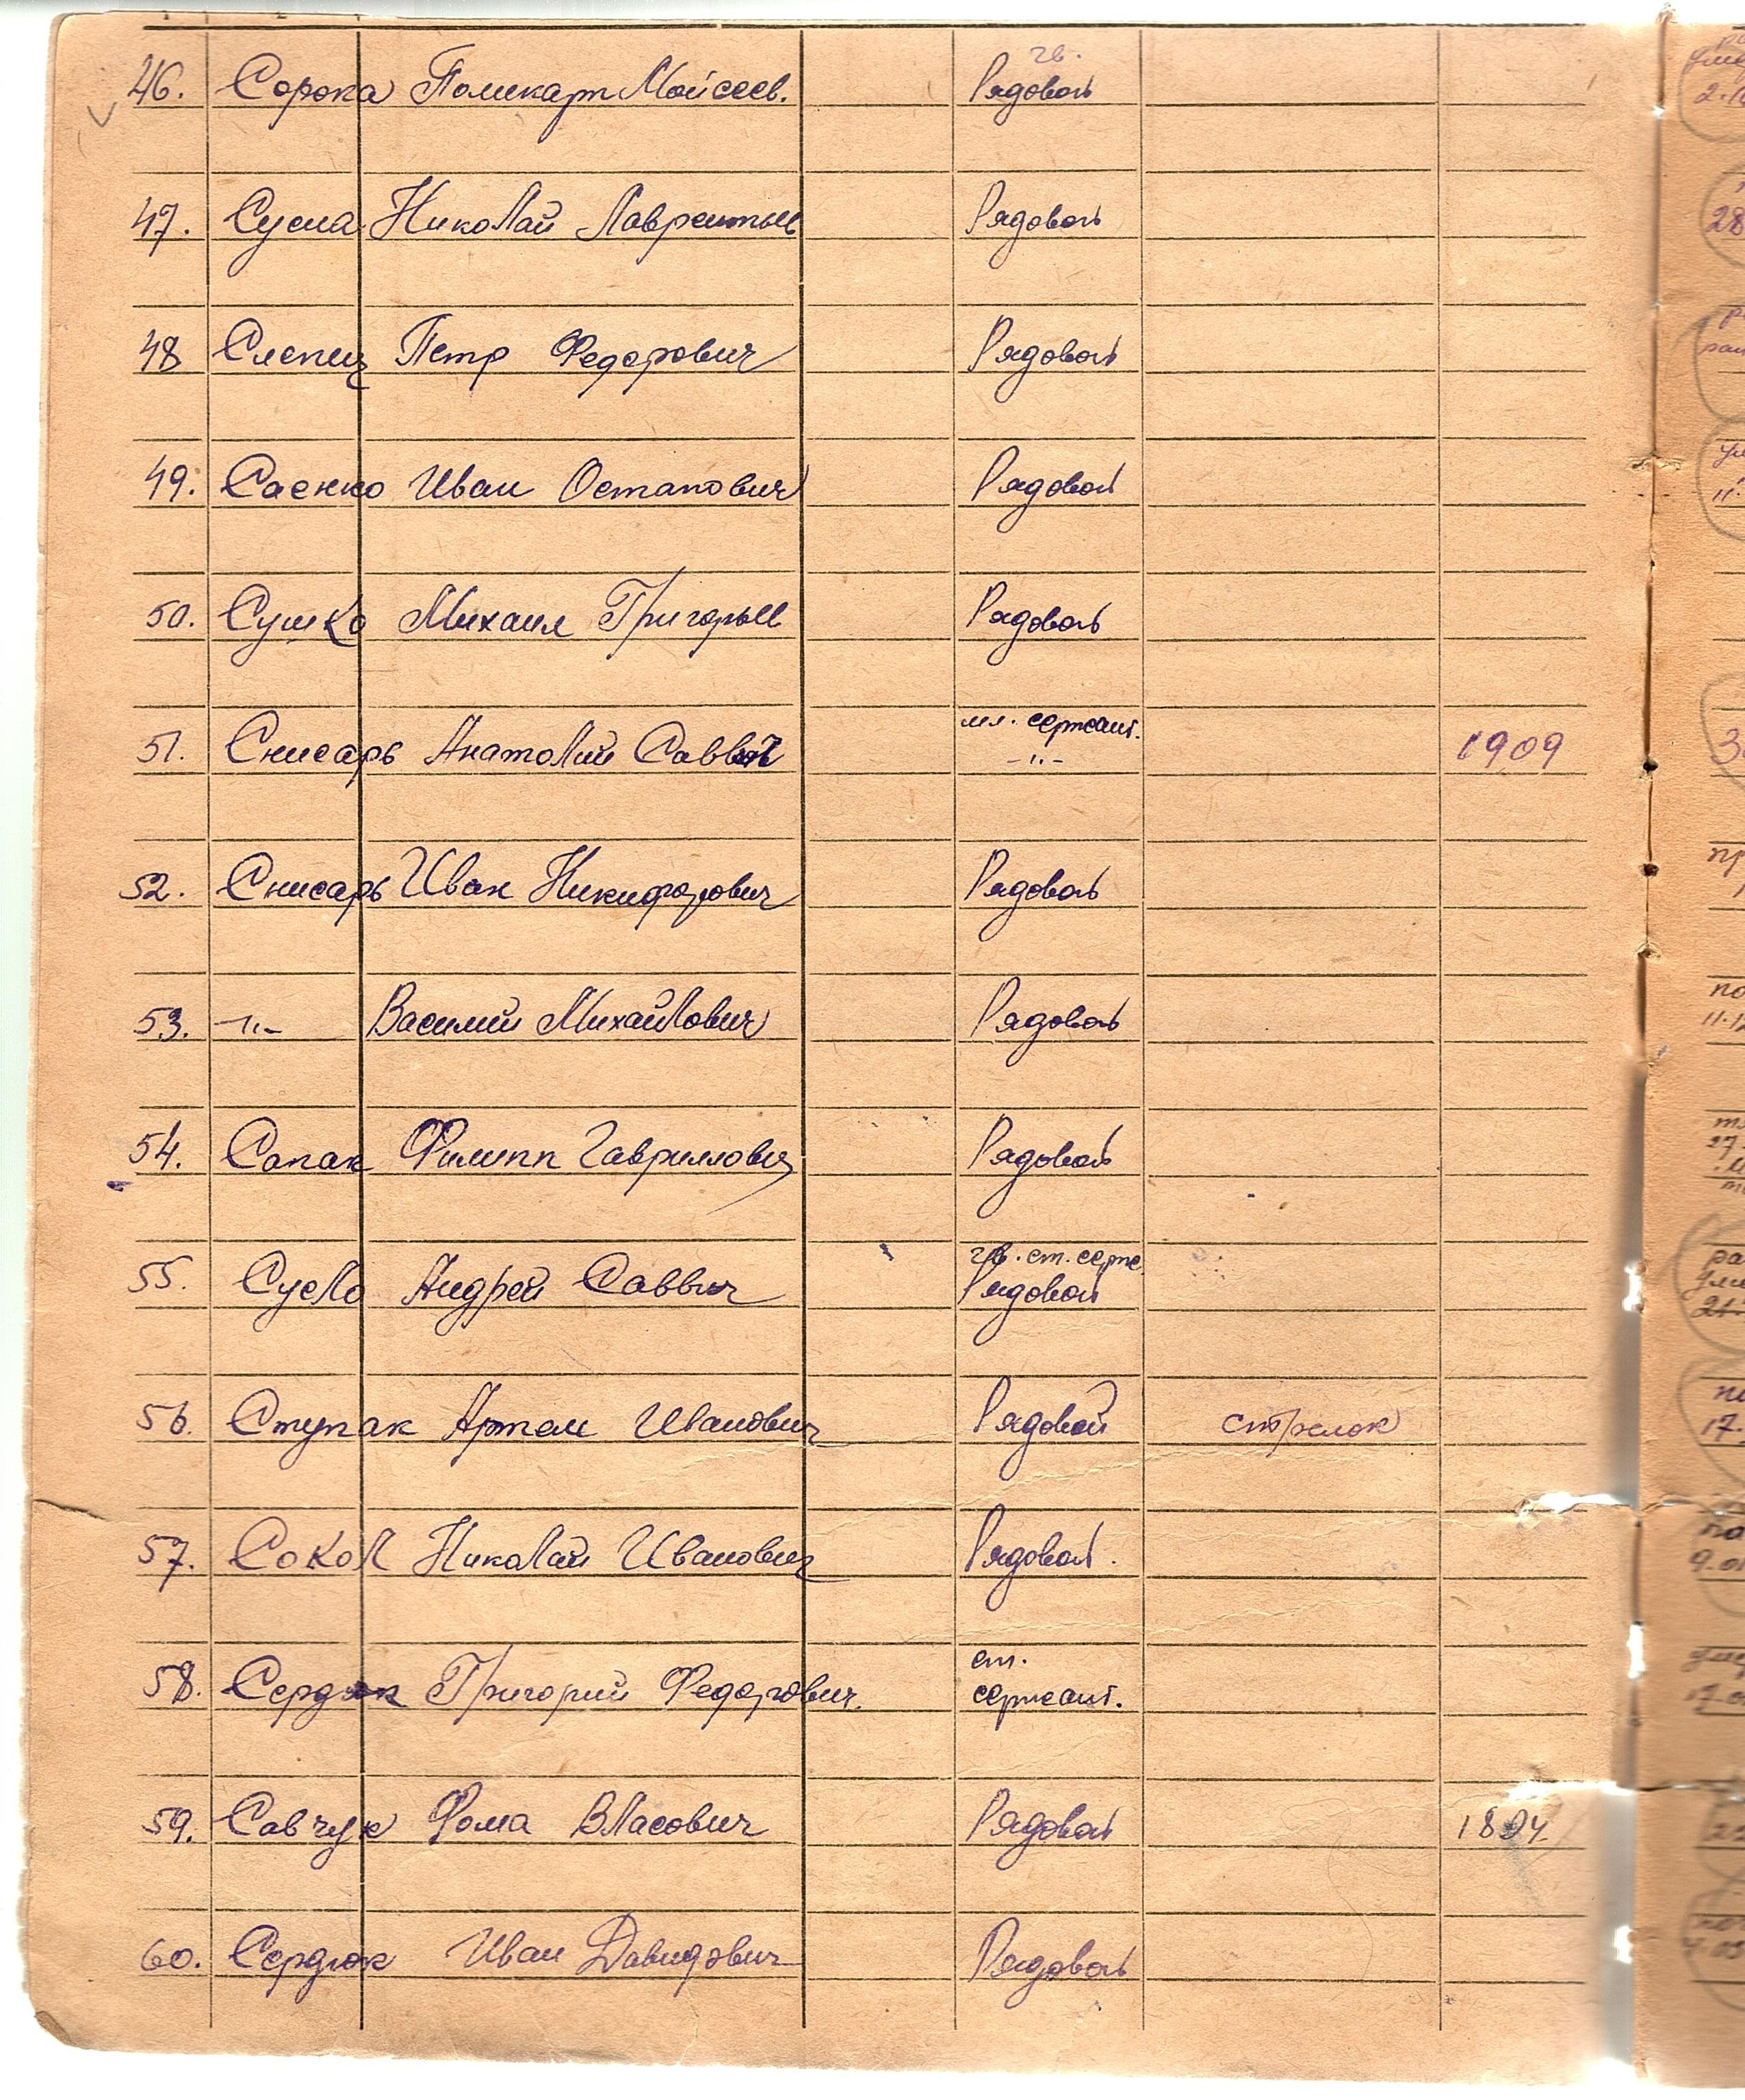 гв.
46. Сорока Поликарп Мойсеев. Рядовой
47. Сусла Николай Лаврентьев Рядовой
48 Слепец Петр Федорович Рядовой
49. Саенко Иван Остапович Рядовой
50. Сушко Михаил Григорьев Рядовой
мл. сержант.
51. Снисарь Анатолий Саввич -"- 1909
52. Снисарь Иван Никифорович Рядовой
53. -"- Василий Михайлович Рядовой
54. Сапак Филипп Гаврилович Рядовой
гв. ст. серж.
55. Сусло Андрей Саввич Рядовой
56. Ступак Артем Иванович Рядовой стрелок
57. Сокол Николай Иванович Рядовой.
ст.
58. Сердюк Григорий Федорович. сержант.
59. Савчук Фома Власович Рядовой 1894
60. Сердюк Иван Давидович Рядовой